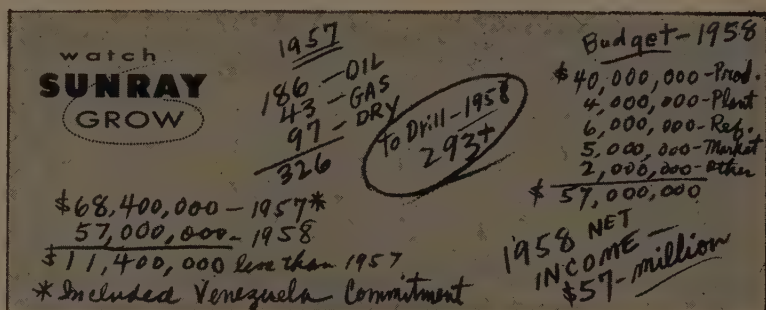 watch
SUNRAY
GROW
1957
186 - OIL
43 - GAS
97 - DRY
326
To Drill - 1958
293+
Budget - 1958
$40,000,000 - Prod.
4,000,000 - Plant
6,000,000 - Ref.
5,000,000 - Market
2,000,000 - Other
$57,000,000
$68,400,000 - 1957*
57,000,000 - 1958
$11,400,000 less than 1957
* Included Venezuela Commitment
1958 NET
INCOME -
$57 - million